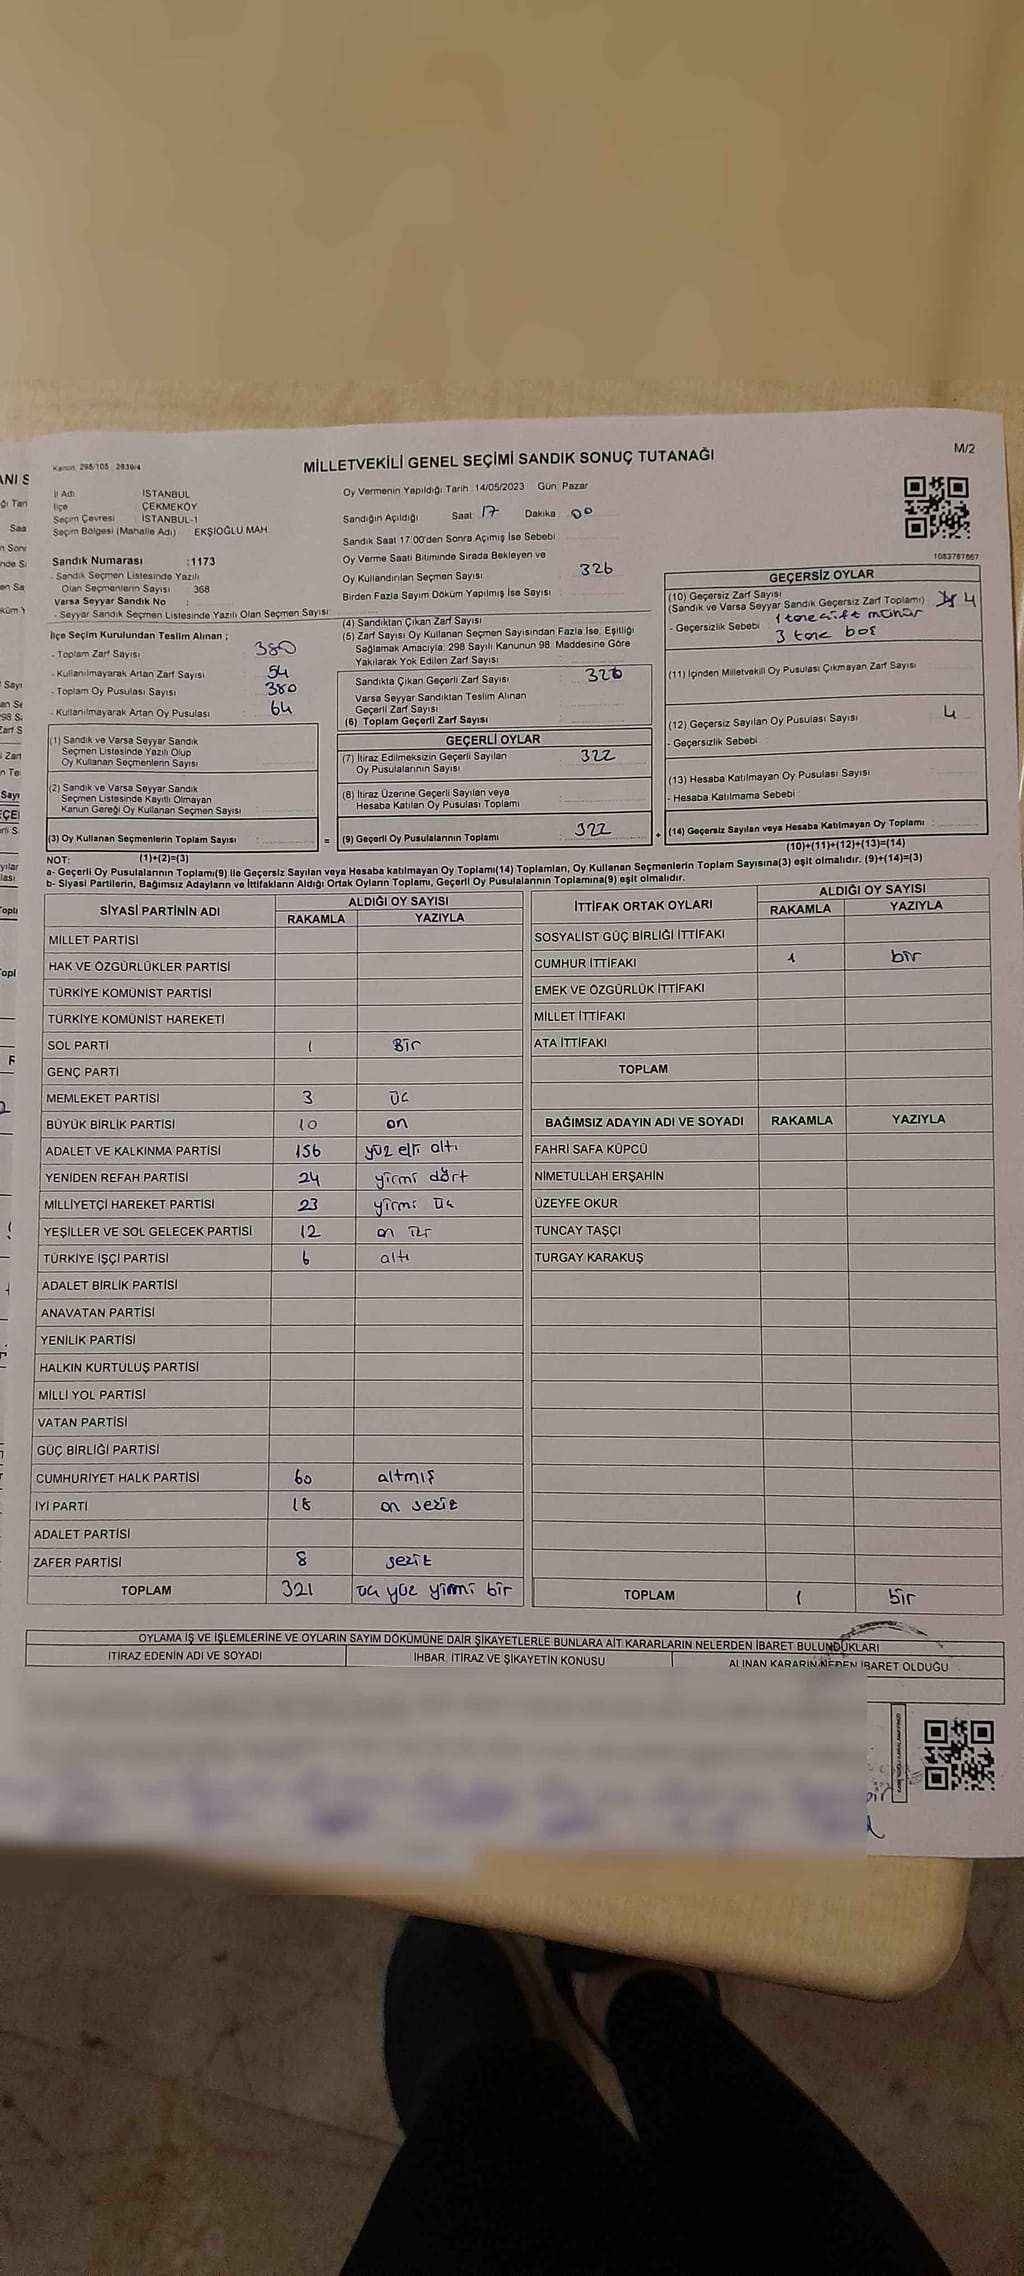 MİLLETVEKİLİ GENEL SEÇİMİ SANDIK SONUÇ TUTANAĞI
M/2
Kanun, 298/105 2839/4
İl Adı İSTANBUL
İlçe ÇEKMEKÖY
Seçim Çevresi İSTANBUL-1
Seçim Bölgesi (Mahalle Adı) EKŞİOĞLU MAH.
Sandık Numarası :1173
- Sandık Seçmen Listesinde Yazılı
Olan Seçmenlerin Sayısı : 368
Varsa Seyyar Sandık No :
- Seyyar Sandık Seçmen Listesinde Yazılı Olan Seçmen Sayısı:
İlçe Seçim Kurulundan Teslim Alınan ;
- Toplam Zarf Sayısı 380
- Kullanılmayarak Artan Zarf Sayısı 54
- Toplam Oy Pusulası Sayısı 380
- Kullanılmayarak Artan Oy Pusulası 64
(1) Sandık ve Varsa Seyyar Sandık
Seçmen Listesinde Yazılı Olup
Oy Kullanan Seçmenlerin Sayısı :
(2) Sandık ve Varsa Seyyar Sandık
Seçmen Listesinde Kayıtlı Olmayan
Kanun Gereği Oy Kullanan Seçmen Sayısı :
(3) Oy Kullanan Seçmenlerin Toplam Sayısı :
Oy Vermenin Yapıldığı Tarih 14/05/2023 Gün: Pazar
Sandığın Açıldığı Saat 17 Dakika 00
Sandık Saat 17:00'den Sonra Açımış İse Sebebi
Oy Verme Saati Bitiminde Sırada Bekleyen ve
Oy Kullandırılan Seçmen Sayısı 326
Birden Fazla Sayım Döküm Yapılmış İse Sayısı
(4) Sandıktan Çıkan Zarf Sayısı
(5) Zarf Sayısı Oy Kullanan Seçmen Sayısından Fazla İse, Eşitliği
Sağlamak Amacıyla, 298 Sayılı Kanunun 98. Maddesine Göre
Yakılarak Yok Edilen Zarf Sayısı
Sandıkta Çıkan Geçerli Zarf Sayısı 326
Varsa Seyyar Sandıktan Teslim Alınan
Geçerli Zarf Sayısı
(6) Toplam Geçerli Zarf Sayısı
GEÇERLİ OYLAR
(7) İtiraz Edilmeksizin Geçerli Sayılan
Oy Pusulalarının Sayısı 322
(8) İtiraz Üzerine Geçerli Sayılan veya
Hesaba Katılan Oy Pusulası Toplamı
= (9) Geçerli Oy Pusulalarının Toplamı : 322 +
1083787867
GEÇERSİZ OYLAR
(10) Geçersiz Zarf Sayısı
(Sandık ve Varsa Seyyar Sandık Geçersiz Zarf Toplamı) 4
- Geçersizlik Sebebi : 1 tane çift mühür
3 tane boş
(11) İçinden Milletvekili Oy Pusulası Çıkmayan Zarf Sayısı
(12) Geçersiz Sayılan Oy Pusulası Sayısı 4
- Geçersizlik Sebebi :
(13) Hesaba Katılmayan Oy Pusulası Sayısı
- Hesaba Katılmama Sebebi :
(14) Geçersiz Sayılan veya Hesaba Katılmayan Oy Toplamı :
(10)+(11)+(12)+(13)=(14)
NOT: (1)+(2)=(3)
a- Geçerli Oy Pusulalarının Toplamı(9) ile Geçersiz Sayılan veya Hesaba katılmayan Oy Toplamı(14) Toplamları, Oy Kullanan Seçmenlerin Toplam Sayısına(3) eşit olmalıdır. (9)+(14)=(3)
b- Siyasi Partilerin, Bağımsız Adayların ve İttifakların Aldığı Ortak Oyların Toplamı, Geçerli Oy Pusulalarının Toplamına(9) eşit olmalıdır.
SİYASİ PARTİNİN ADI ALDIĞI OY SAYISI
RAKAMLA YAZIYLA
MİLLET PARTİSİ
HAK VE ÖZGÜRLÜKLER PARTİSİ
TÜRKİYE KOMÜNİST PARTİSİ
TÜRKİYE KOMÜNİST HAREKETİ
SOL PARTİ 1 Bir
GENÇ PARTİ
MEMLEKET PARTİSİ 3 üç
BÜYÜK BİRLİK PARTİSİ 10 on
ADALET VE KALKINMA PARTİSİ 156 yüz elli altı
YENİDEN REFAH PARTİSİ 24 yirmi dört
MİLLİYETÇİ HAREKET PARTİSİ 23 yirmi üç
YEŞİLLER VE SOL GELECEK PARTİSİ 12 on iki
TÜRKİYE İŞÇİ PARTİSİ 6 altı
ADALET BİRLİK PARTİSİ
ANAVATAN PARTİSİ
YENİLİK PARTİSİ
HALKIN KURTULUŞ PARTİSİ
MİLLİ YOL PARTİSİ
VATAN PARTİSİ
GÜÇ BİRLİĞİ PARTİSİ
CUMHURİYET HALK PARTİSİ 60 altmış
İYİ PARTİ 18 on sekiz
ADALET PARTİSİ
ZAFER PARTİSİ 8 sekiz
TOPLAM 321 üç yüz yirmi bir
İTTİFAK ORTAK OYLARI ALDIĞI OY SAYISI
RAKAMLA YAZIYLA
SOSYALİST GÜÇ BİRLİĞİ İTTİFAKI
CUMHUR İTTİFAKI 1 bir
EMEK VE ÖZGÜRLÜK İTTİFAKI
MİLLET İTTİFAKI
ATA İTTİFAKI
TOPLAM
BAĞIMSIZ ADAYIN ADI VE SOYADI RAKAMLA YAZIYLA
FAHRİ SAFA KÜPCÜ
NİMETULLAH ERŞAHİN
ÜZEYFE OKUR
TUNCAY TAŞÇI
TURGAY KARAKUŞ
TOPLAM 1 bir
OYLAMA İŞ VE İŞLEMLERİNE VE OYLARIN SAYIM DÖKÜMÜNE DAİR ŞİKAYETLERLE BUNLARA AİT KARARLARIN NELERDEN İBARET BULUNDUKLARI
İTİRAZ EDENİN ADI VE SOYADI İHBAR, İTİRAZ VE ŞİKAYETİN KONUSU ALINAN KARARIN NEDEN İBARET OLDUĞU